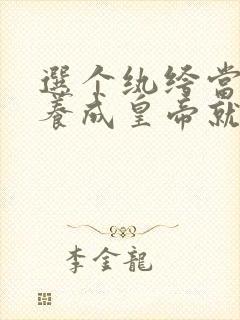 選个纨绔當
養成皇帝就
李金龍